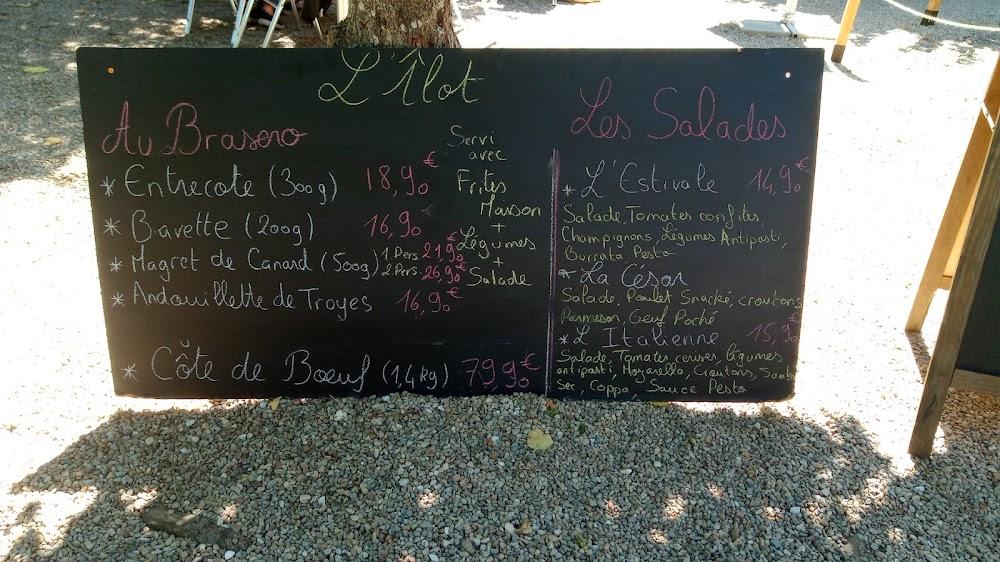 L'Îlot
Au Brasero
* Entrecote (300g) 18,90€
* Bavette (200g) 16,90€
* Magret de Canard (500g) 1 Pers 21,90€
2 Pers 26,90€
* Andouillette de Troyes 16,90€
* Côte de Boeuf (1,4kg) 79,90€
Servi
avec
Frites
Maison
+
Légumes
+
Salade
Les Salades
* L'Estivale 14,90€
Salade, Tomates confites,
Champignons, Légumes Antipasti,
Burrata Pesto
* La César
Salade, Poulet Snacké, croutons
Parmesan, Oeuf Poché
* L'Italienne 15,90€
Salade, Tomates cerises, légumes
antipasti, Mozarella, Croutons, Jamb
Sec, Coppa, Sauce Pesto